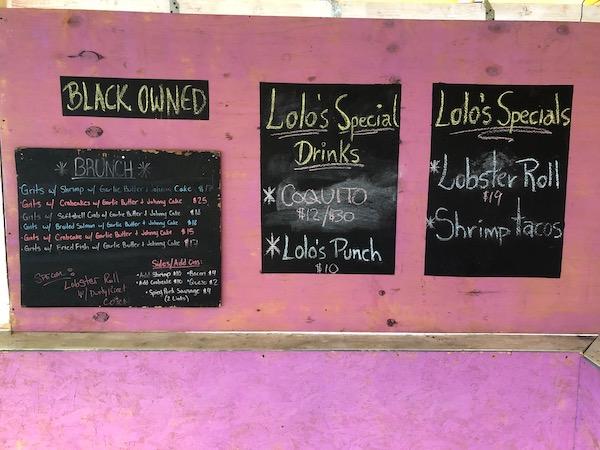 BLACK OWNED
* BRUNCH *
Grits w/ Shrimp w/ Garlic Butter & Johnny Cake
Grits w/ Crabcakes w/ Garlic Butter & Johnny Cake $25
Grits w/ Softshell Crab w/ Garlic Butter & Johnny Cake
Grits w/ Broiled Salmon w/ Garlic Butter & Johnny Cake
Grits w/ Crabcake w/ Garlic Butter & Johnny Cake $15
Grits w/ Fried Fish w/ Garlic Butter & Johnny Cake $17
Sides/Add Ons:
• Add Shrimp $10 • Bacon $4
• Add Crabcake $10
• Spicy Pork Sausage $4
(2 Links)
Lobster Roll
Lolo's Special
Drinks
* COQUITO
$12/$30
* Lolo's Punch
$10
Lolo's Specials
* Lobster Roll
$19
* Shrimp tacos